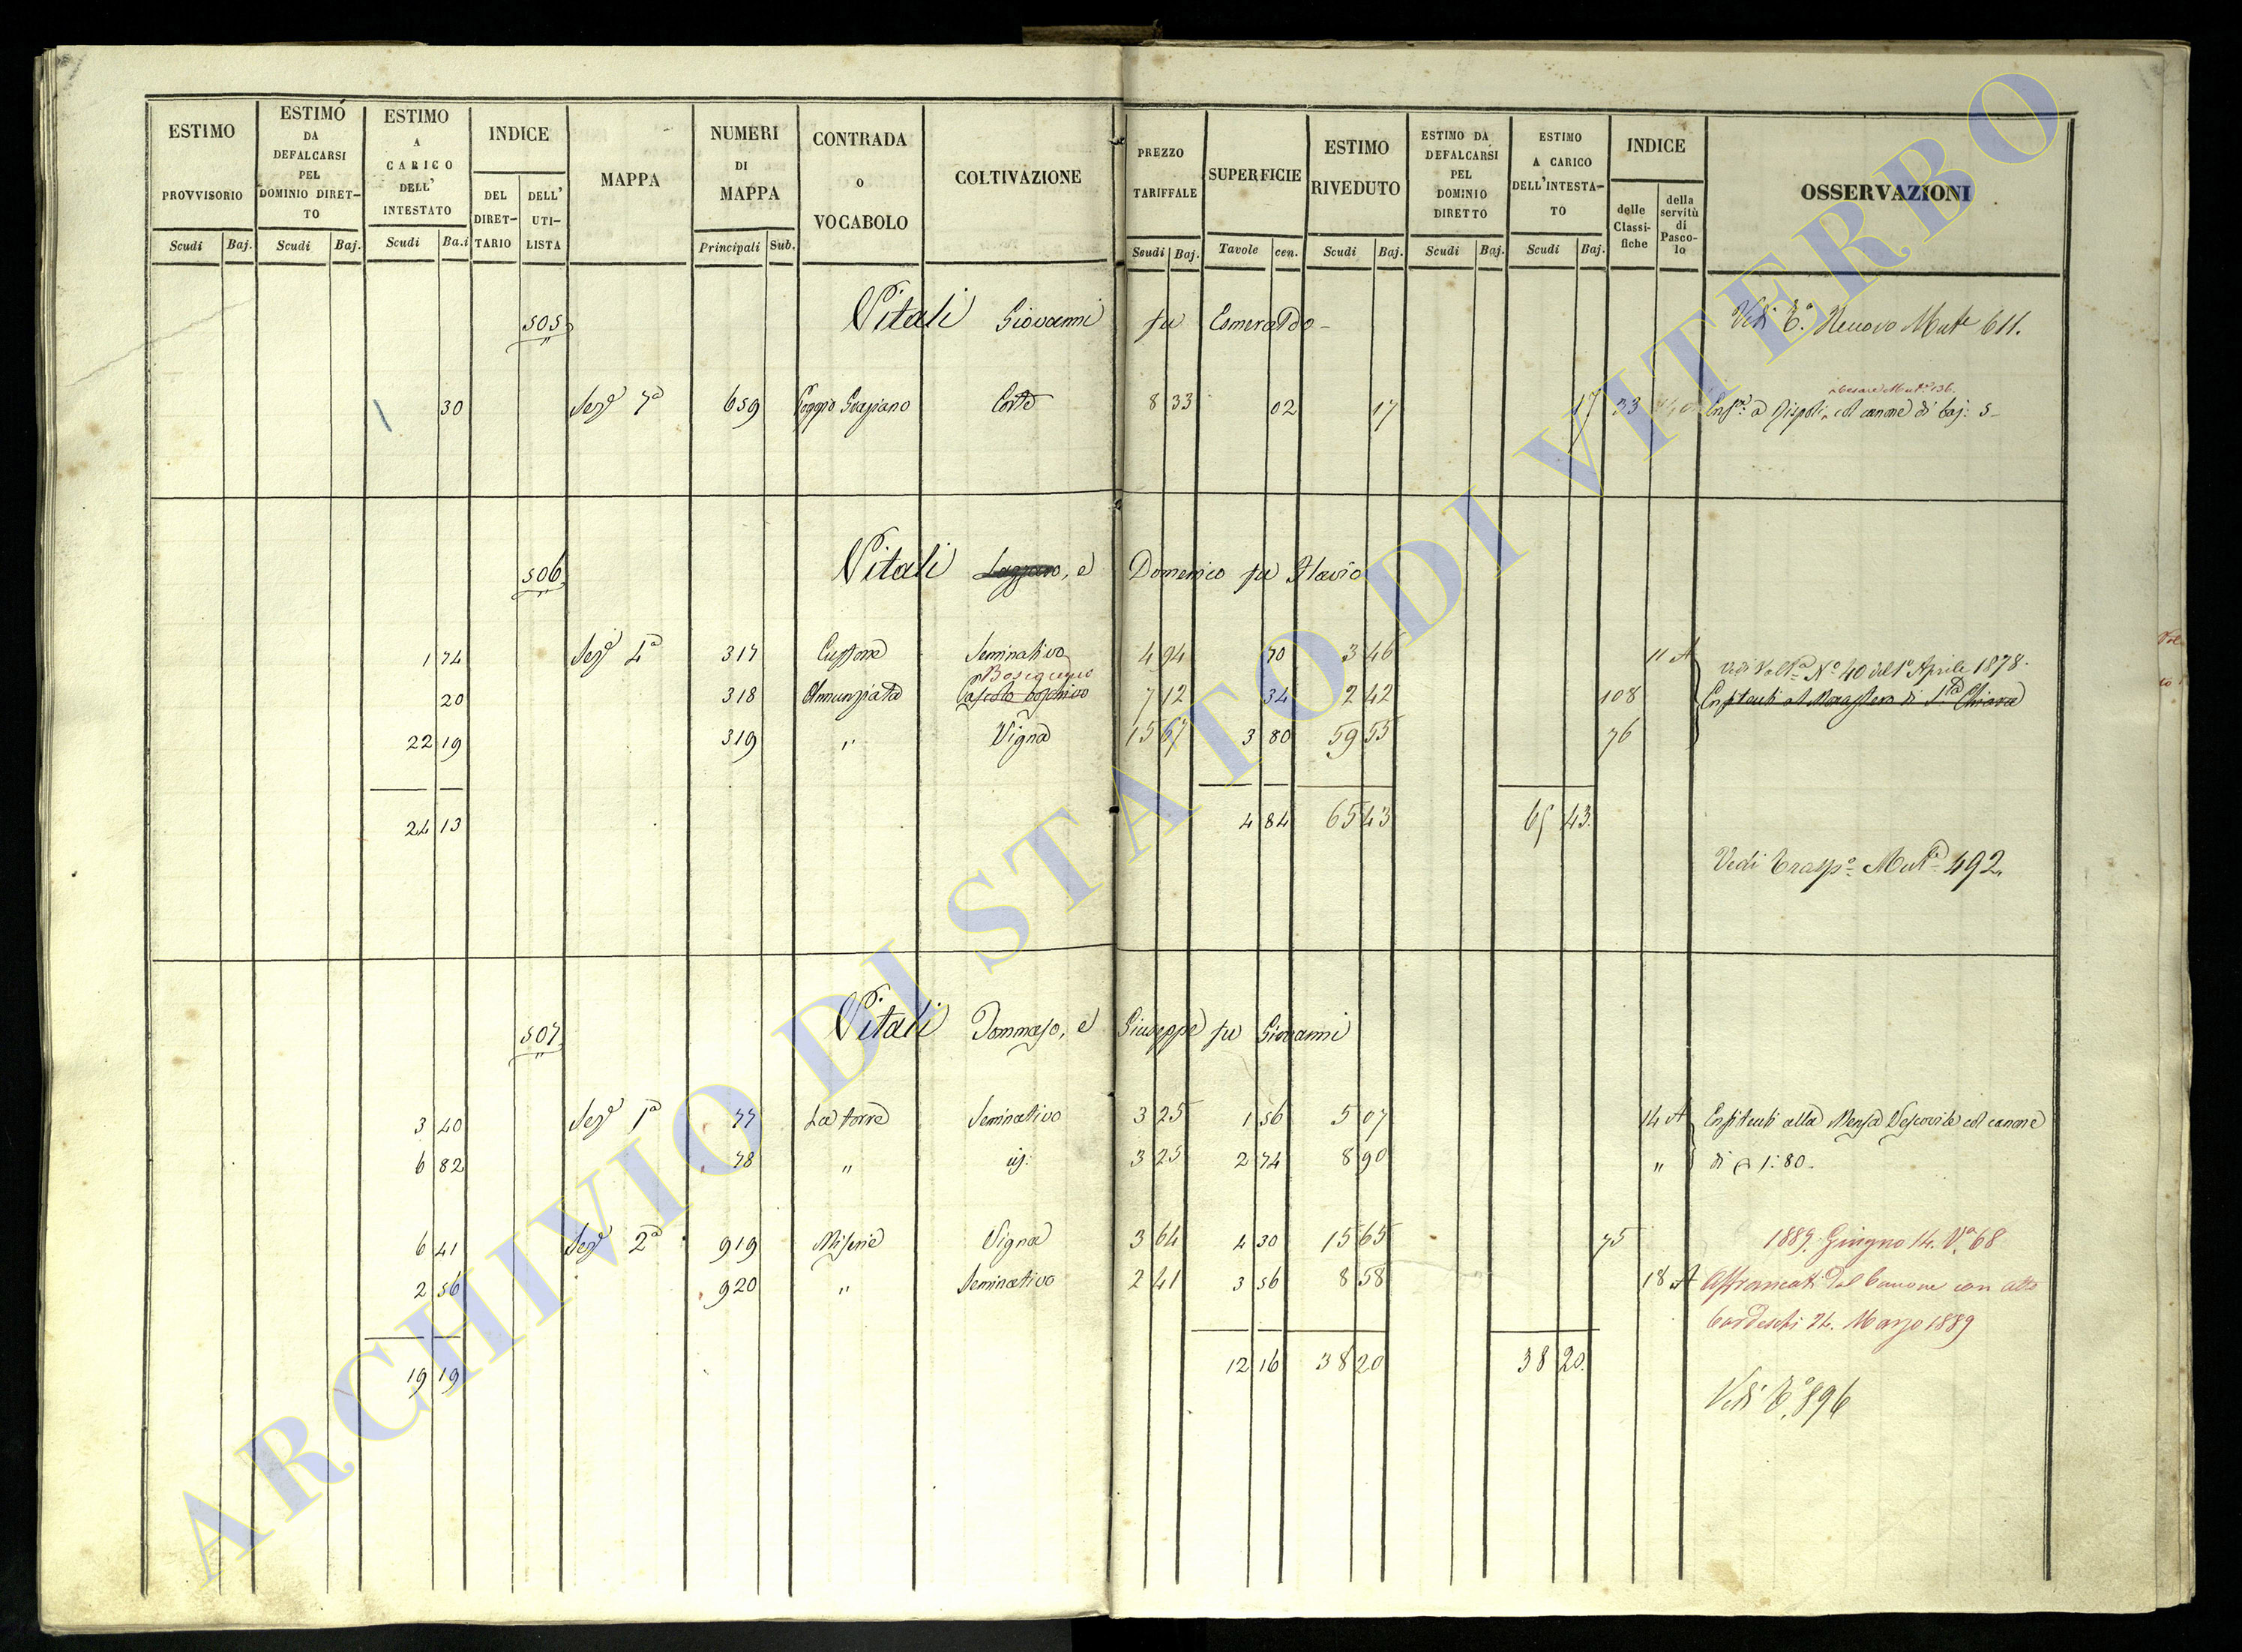 ESTIMO PROVVISORIO Scudi Baj.
ESTIMO DA DEFALCARSI PEL DOMINIO DIRET-TO Scudi Baj.
ESTIMO A CARICO DELL' INTESTATO Scudi Ba.i
INDICE DEL DIRET-TARIO DELL' UTI-LISTA
MAPPA
NUMERI DI MAPPA Principali Sub.
CONTRADA o VOCABOLO
COLTIVAZIONE
PREZZO TARIFFALE Scudi Baj.
SUPERFICIE Tavole cen.
ESTIMO RIVEDUTO Scudi Baj.
ESTIMO DA DEFALCARSI PEL DOMINIO DIRETTO Scudi Baj.
ESTIMO A CARICO DELL'INTESTA-TO Scudi Baj.
INDICE delle Classi-fiche della servitù di Pasco-lo
OSSERVAZIONI
505 Vitali Giovanni fu Esmeraldo Vedi T.o Nuovo Mut.e 611.
Cesare Mut.e 136.
30 Sez.e 7a 659 Poggio Graziano Orto 8 33 02 17 17 33 a Dispoti, col canone di baj: 5
506 Vitali Lazzaro, e Domenico fu Flavio
1 74 Sez.e 4a 317 Seminativo 4 94 70 3 46 11 A
Vedi Volt.a N.o 40 del 1o Aprile 1878.
20 318 Annunziata Pascolo boschivo 7 12 34 2 42 108 Enfiteuti al Monastero di S.ta Chiara
22 19 319 " Vigna 15 67 3 80 59 55 76
24 13 4 84 65 43 65 43.
Vedi Trasp.o Mut.a 492.
507 Vitali Tommaso, e Giuseppe fu Giovanni
3 40 Sez.e 1a 77 La torre Seminativo 3 25 1 56 5 07 14 A Enfiteuti alla Mensa Vescovile col canone
6 82 78 " id: 3 25 2 74 8 90 " di 1:80.
6 41 Sez.e 2a 919 Vigna 3 64 4 30 15 65 75 1889. Giugno 14. V.a 68
2 56 920 " Seminativo 2 41 3 56 8 58 18 A Affrancati dal Canone con atto
24. Marzo 1889
19 19 12 16 38 20 38 20.
Vedi T.o 896
ARCHIVIO DI STATO DI VITERBO